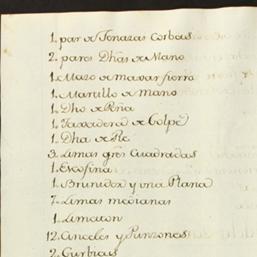 1. par de Tenazas Corbas
2. pares Dhãs de Mano
1. Mazo de macar fierro
1. Martillo de mano
1. Dho de Peña
1. Taxadera de Golpe
1. Dha de Pie
3. Limas grẽs Cuadradas
1. Escofina
1. Brunidor y una Plana
7. Limas medianas
1. Limaton
12. Cinceles y Punzones
2. Gurbias